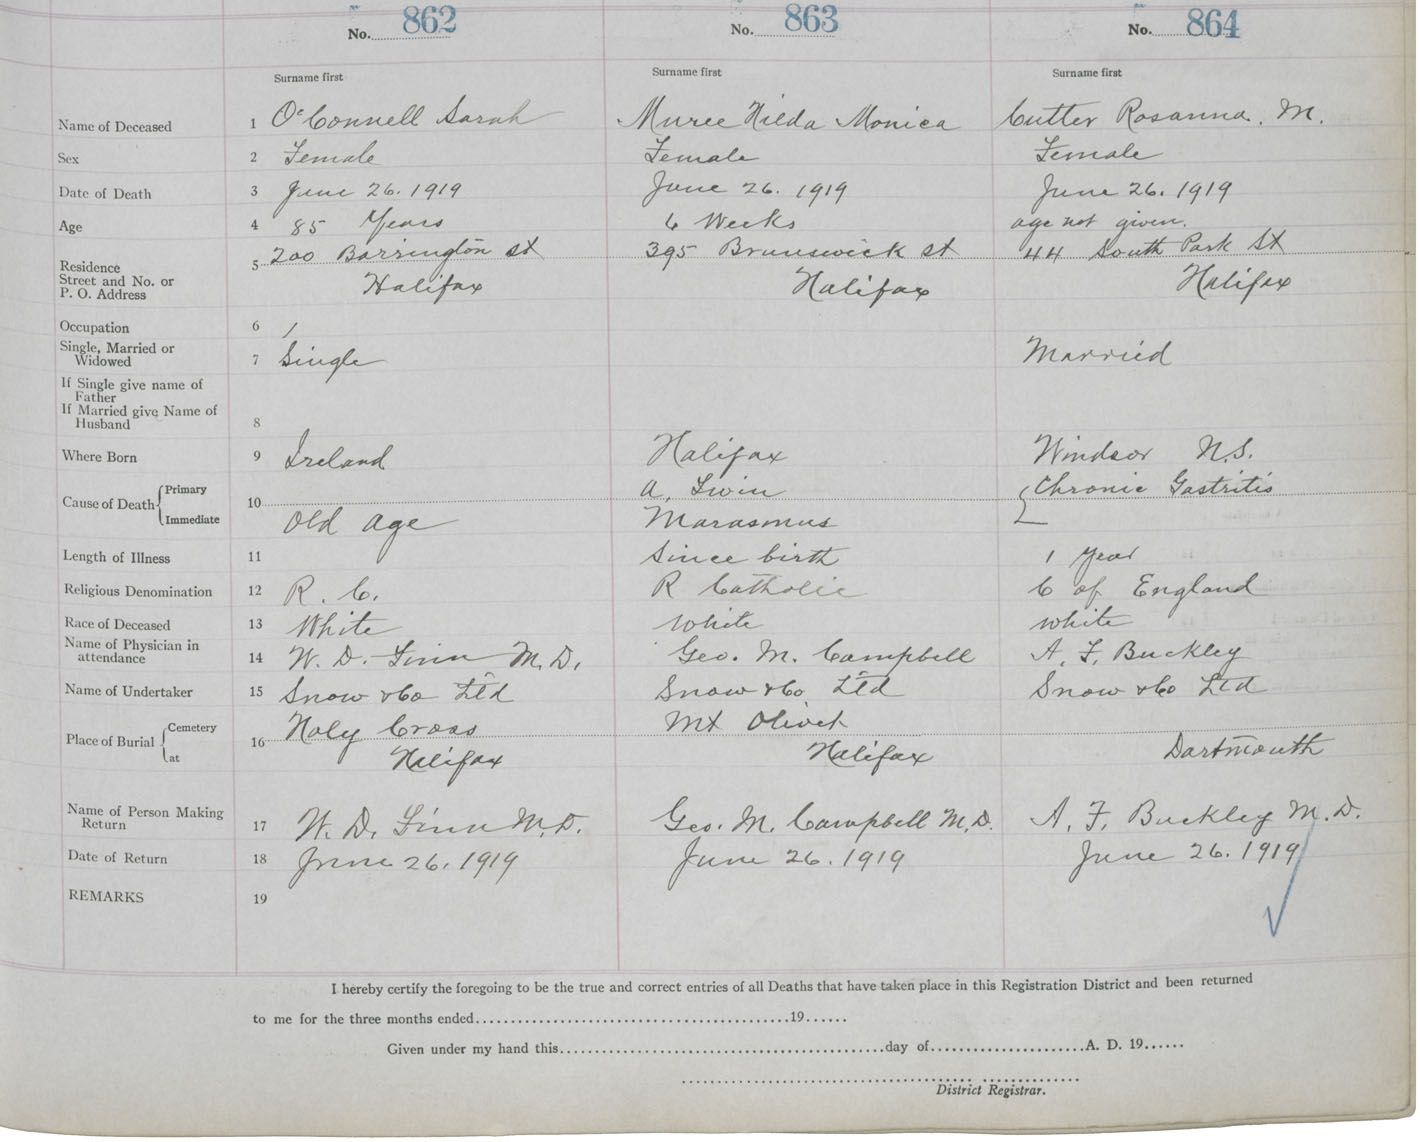 No. 862 No. 863 No. 864
Surname first Surname first Surname first
Name of Deceased 1 O'Connell Sarah Muree Hilda Monica Cutter Rosanna. M.
Sex 2 Female Female Female
Date of Death 3 June 26. 1919 June 26. 1919 June 26. 1919
Age 4 85 Years 6 Weeks age not given.
5 200 Barrington st 395 Brunswick st 44 South Park St
Residence
Street and No. or Halifax Halifax Halifax
P. O. Address
Occupation 6 /
Single, Married or
Widowed 7 Single Married
If Single give name of
Father
If Married give Name of
Husband 8
Where Born 9 Ireland Halifax Windsor N.S.
Cause of Death Primary 10 a, Twin Chronic Gastritis
Immediate Old age Marasmus
Length of Illness 11 Since birth 1 Year
Religious Denomination 12 R. C. R Catholic C of England
Race of Deceased 13 White White white
Name of Physician in
attendance 14 W. D. Finn M.D. Geo. M. Campbell A. F. Buckley
Name of Undertaker 15 Snow & Co Ltd Snow & Co Ltd Snow & Co Ltd
Place of Burial Cemetery 16 Holy Cross Mt Olivet
at Halifax Halifax Dartmouth
Name of Person Making
Return 17 W. D. Finn M.D. Geo. M. Campbell M.D. A. F. Buckley M.D.
Date of Return 18 June 26. 1919 June 26. 1919 June 26. 1919
REMARKS 19
I hereby certify the foregoing to be the true and correct entries of all Deaths that have taken place in this Registration District and been returned
to me for the three months ended........................................19......
Given under my hand this........................................day of......................A. D. 19......
District Registrar.